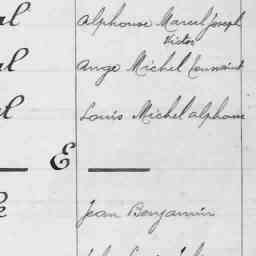 al Alphonse Marcel Joseph
Victor
al Ange Michel Toussaint
al Louis Michel Alphonse
E
Jean Benjamin